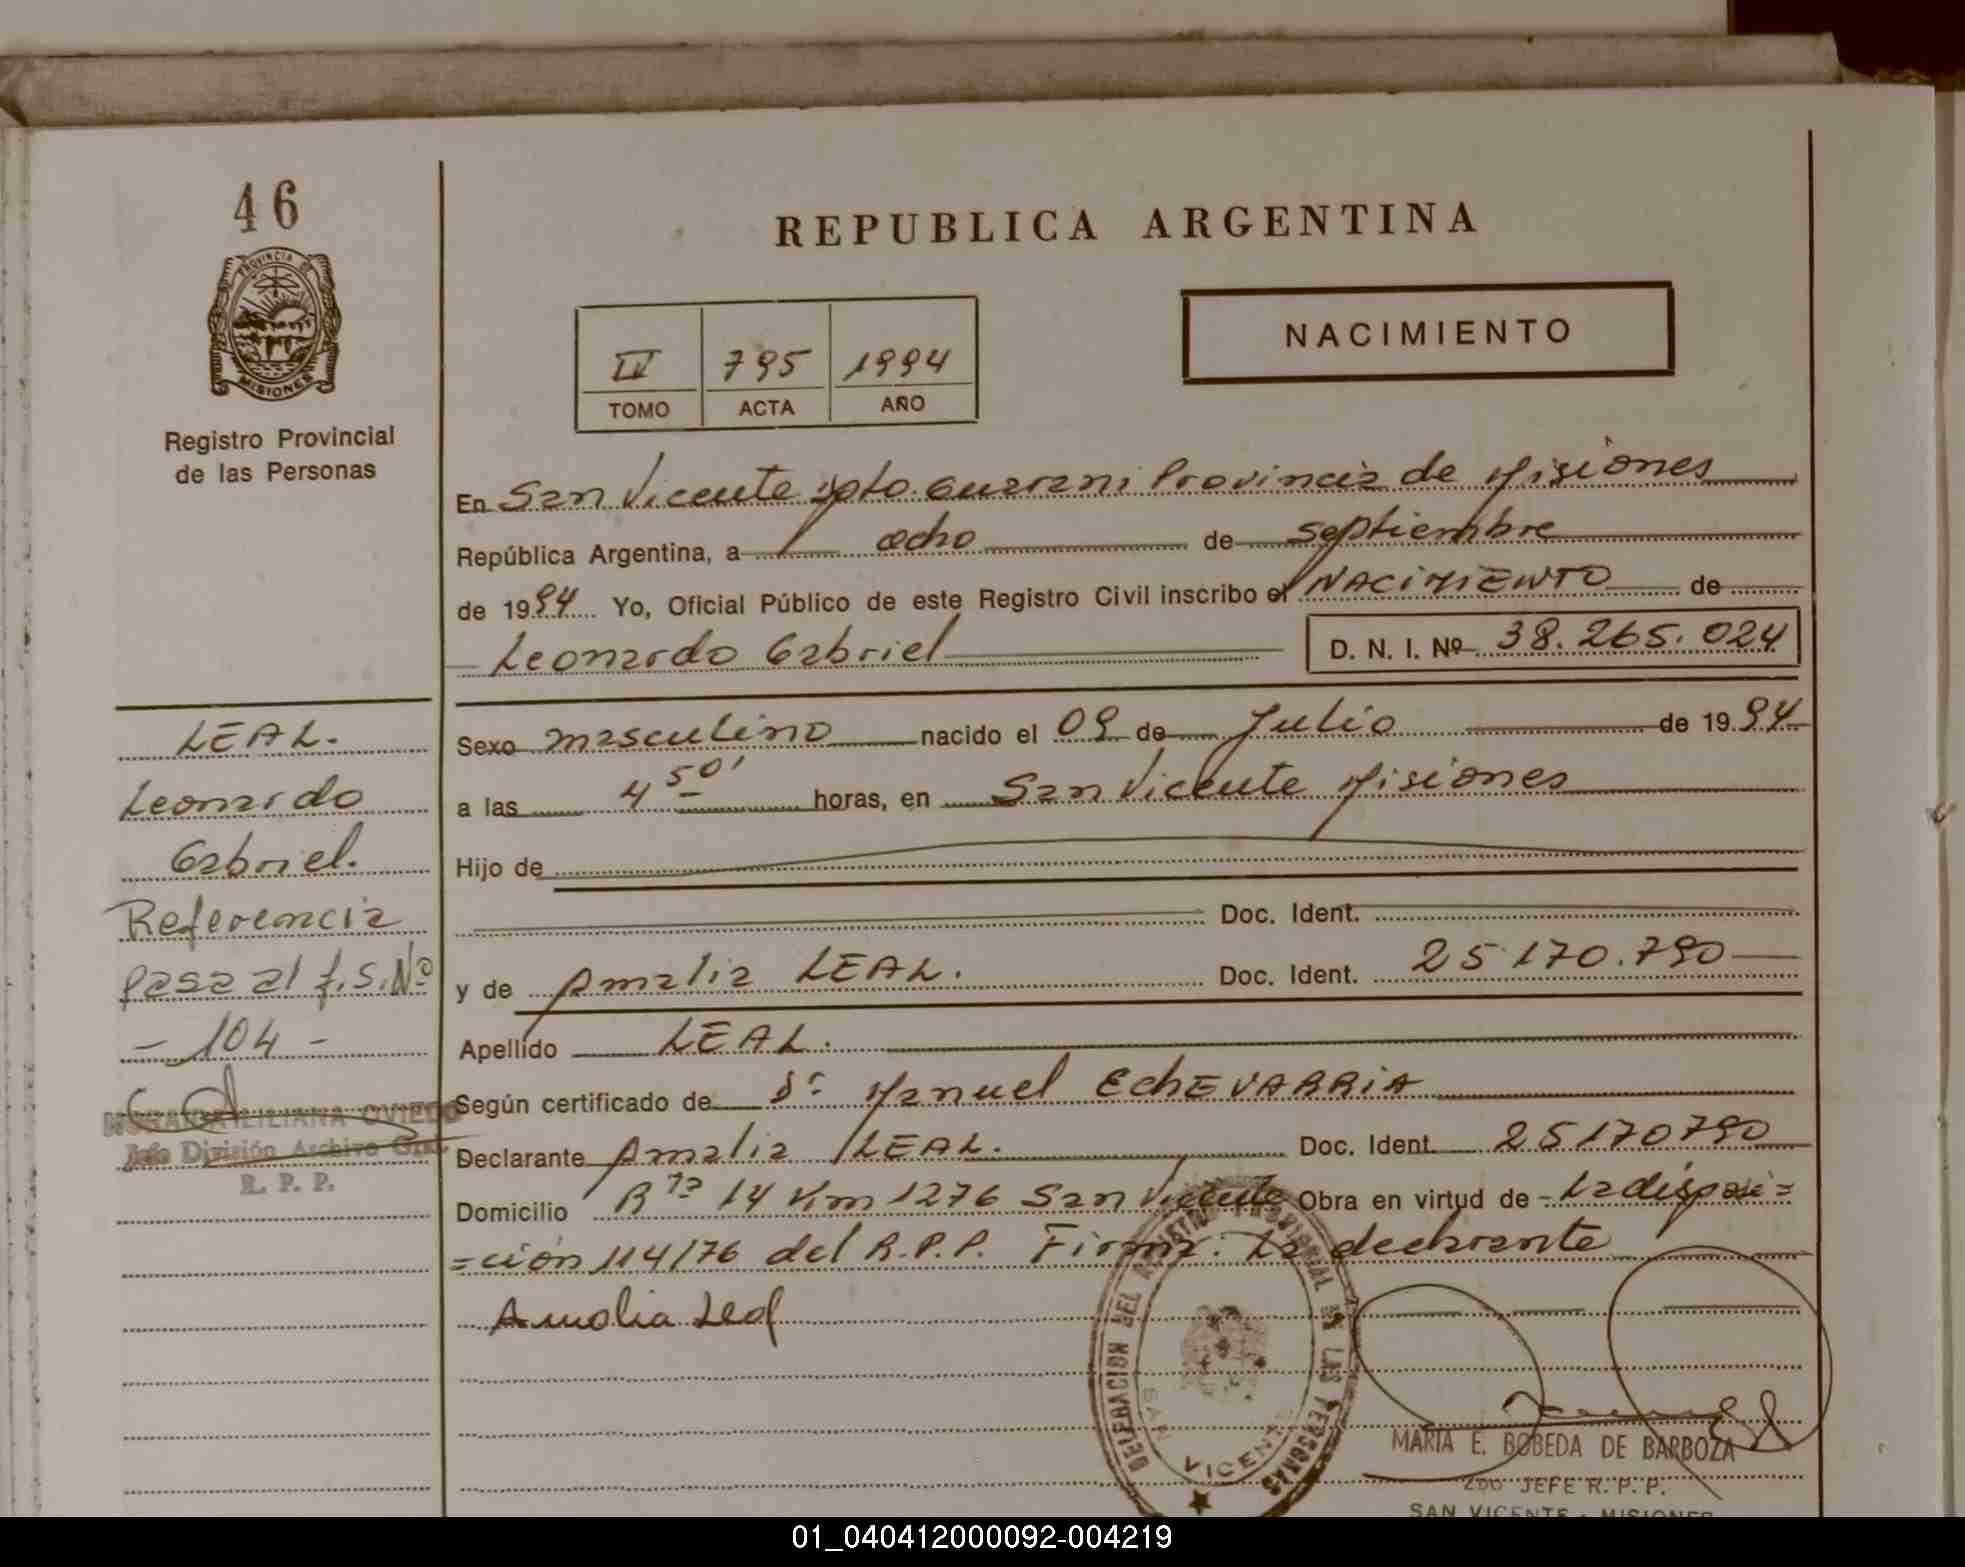 46
REPUBLICA ARGENTINA
PROVINCIA DE
MISIONES
NACIMIENTO
IV 795 1994
TOMO ACTA AÑO
Registro Provincial
de las Personas
En San Vicente Dpto. Guarani Provincia de Misiones
República Argentina, a ocho de septiembre
de 1994 Yo, Oficial Público de este Registro Civil inscribo el NACIMIENTO de
Leonardo Gabriel D. N. I. Nº 38.265.024
LEAL.
Leonardo
Gabriel.
Referencia
pasa al f.s.Nº
- 104 -
LILIANA OVIEDO
Jefe División Archivo Gral.
R. P. P.
Sexo masculino nacido el 09 de Julio de 1994
a las 4 50' horas, en San Vicente Misiones
Hijo de
Doc. Ident.
y de Amalia LEAL. Doc. Ident. 25.170.790
Apellido LEAL.
Según certificado de Dr Manuel EchEVARRIA
Declarante Amalia LEAL. Doc. Ident. 25170790
Domicilio Rta 14 Km 1276 San Vicente Obra en virtud de La disposi=
=ción 114/76 del R.P.P. Firma: La declarante
Amalia Leal
DELEGACION DEL REGISTRO PROVINCIAL DE LAS PERSONAS
SAN VICENTE
MARIA E. BOBEDA DE BARBOZA
2DO JEFE R. P. P.
SAN VICENTE - MISIONES
01_040412000092-004219